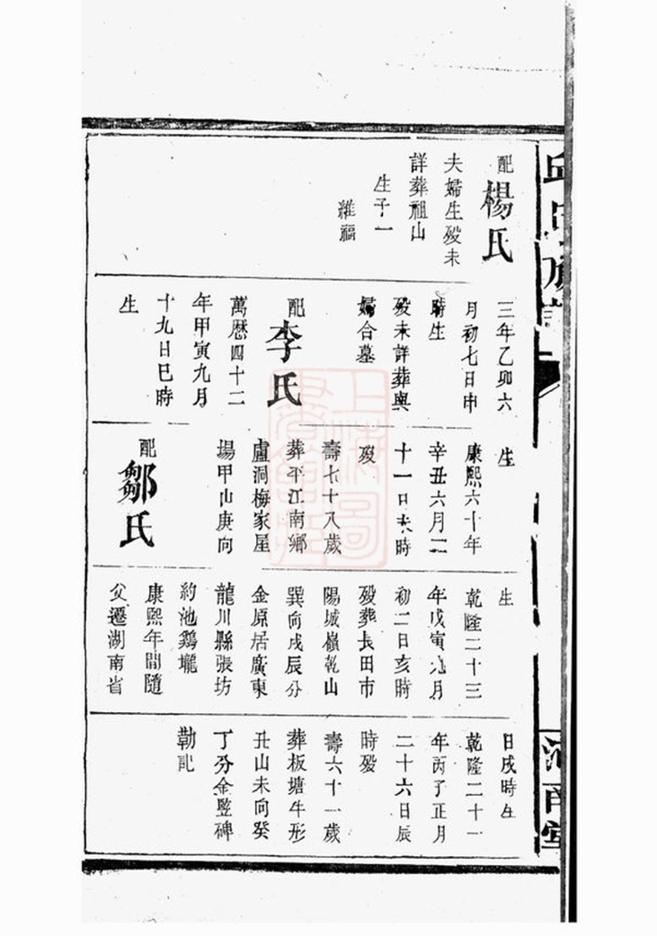 配楊氏
夫婦生殁未
詳葬祖山
生子一
維福
三年乙卯六
月初七日申
時生
殁未詳葬與
婦合墓
配李氏
萬厯四十二
年甲寅九月
十九日巳時
生
生
康熙六十年
辛丑六月二
十一日未時
殁
壽七十八歲
葬平江南鄉
盧洞梅家屋
場甲山庚向
配鄒氏
生
乾隆二十三
年戊寅九月
初二日亥時
殁葬長田市
陽城嶺乾山
巽向戌辰分
金原居廣東
龍川縣張坊
約池鷄壠
康熙年間隨
父遷湖南省
日戌時生
乾隆二十一
年丙子正月
二十六日辰
時殁
壽六十一歲
葬板塘牛形
丑山未向癸
丁分金竪碑
勒記